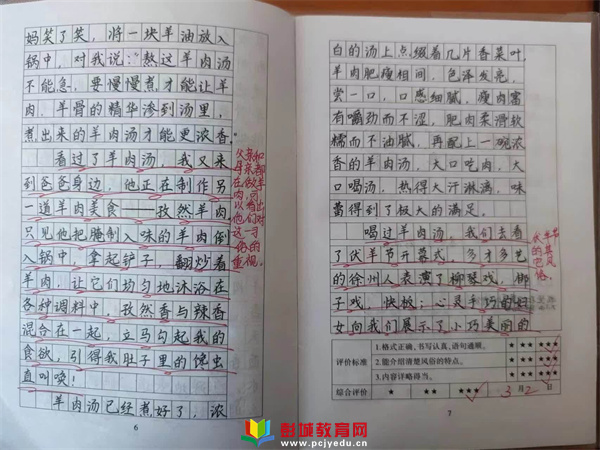 妈笑了笑,将一块羊油放入
锅中,对我说:“熬这羊肉汤
不能急,要慢慢煮才能让羊
肉、羊骨的精华渗到汤里,
煮出来的羊肉汤才能更浓香。”
看过了羊肉汤,我又来
到爸爸身边,他正在制作另
一道羊肉美食——孜然羊肉。
只见他把腌制入味的羊肉倒
入锅中,拿起铲子,翻炒着
羊肉,让它们均匀地沐浴在
各种调料中,孜然香与辣香
混合在一起,立马勾起我的
食欲,引得我肚子里的馋虫
直叫唤!
羊肉汤已经煮好了,浓
父亲和
母亲都
在做羊
肉,可
以看出
他们对
这一习
俗的
重视。
6
白的汤上点缀着几片香菜叶,
羊肉肥瘦相间,色泽发亮,
尝一口,口感细腻,瘦肉富
有嚼劲而不涩,肥肉柔滑软
糯而不油腻,再配上一碗浓
香的羊肉汤,大口吃肉,大
口喝汤,热得大汗淋漓,味
蕾得到了极大的满足。
喝过羊肉汤,我们去看
了伏羊节开幕式,多才多艺
的徐州人表演了柳琴戏,梆
子戏,快板;心灵手巧的妇
女向我们展示了小巧美丽的
评价标准
1.格式正确,书写认真,语句通顺。 ★ ★★ ★★★
2.能介绍清楚风俗的特点。 ★ ★★ ★★★
3.内容详略得当。 ★ ★★ ★★★
综合评价 ★ ★★ ★★★ 3月2日
7
彭城教育网
www.pcjyedu.cn